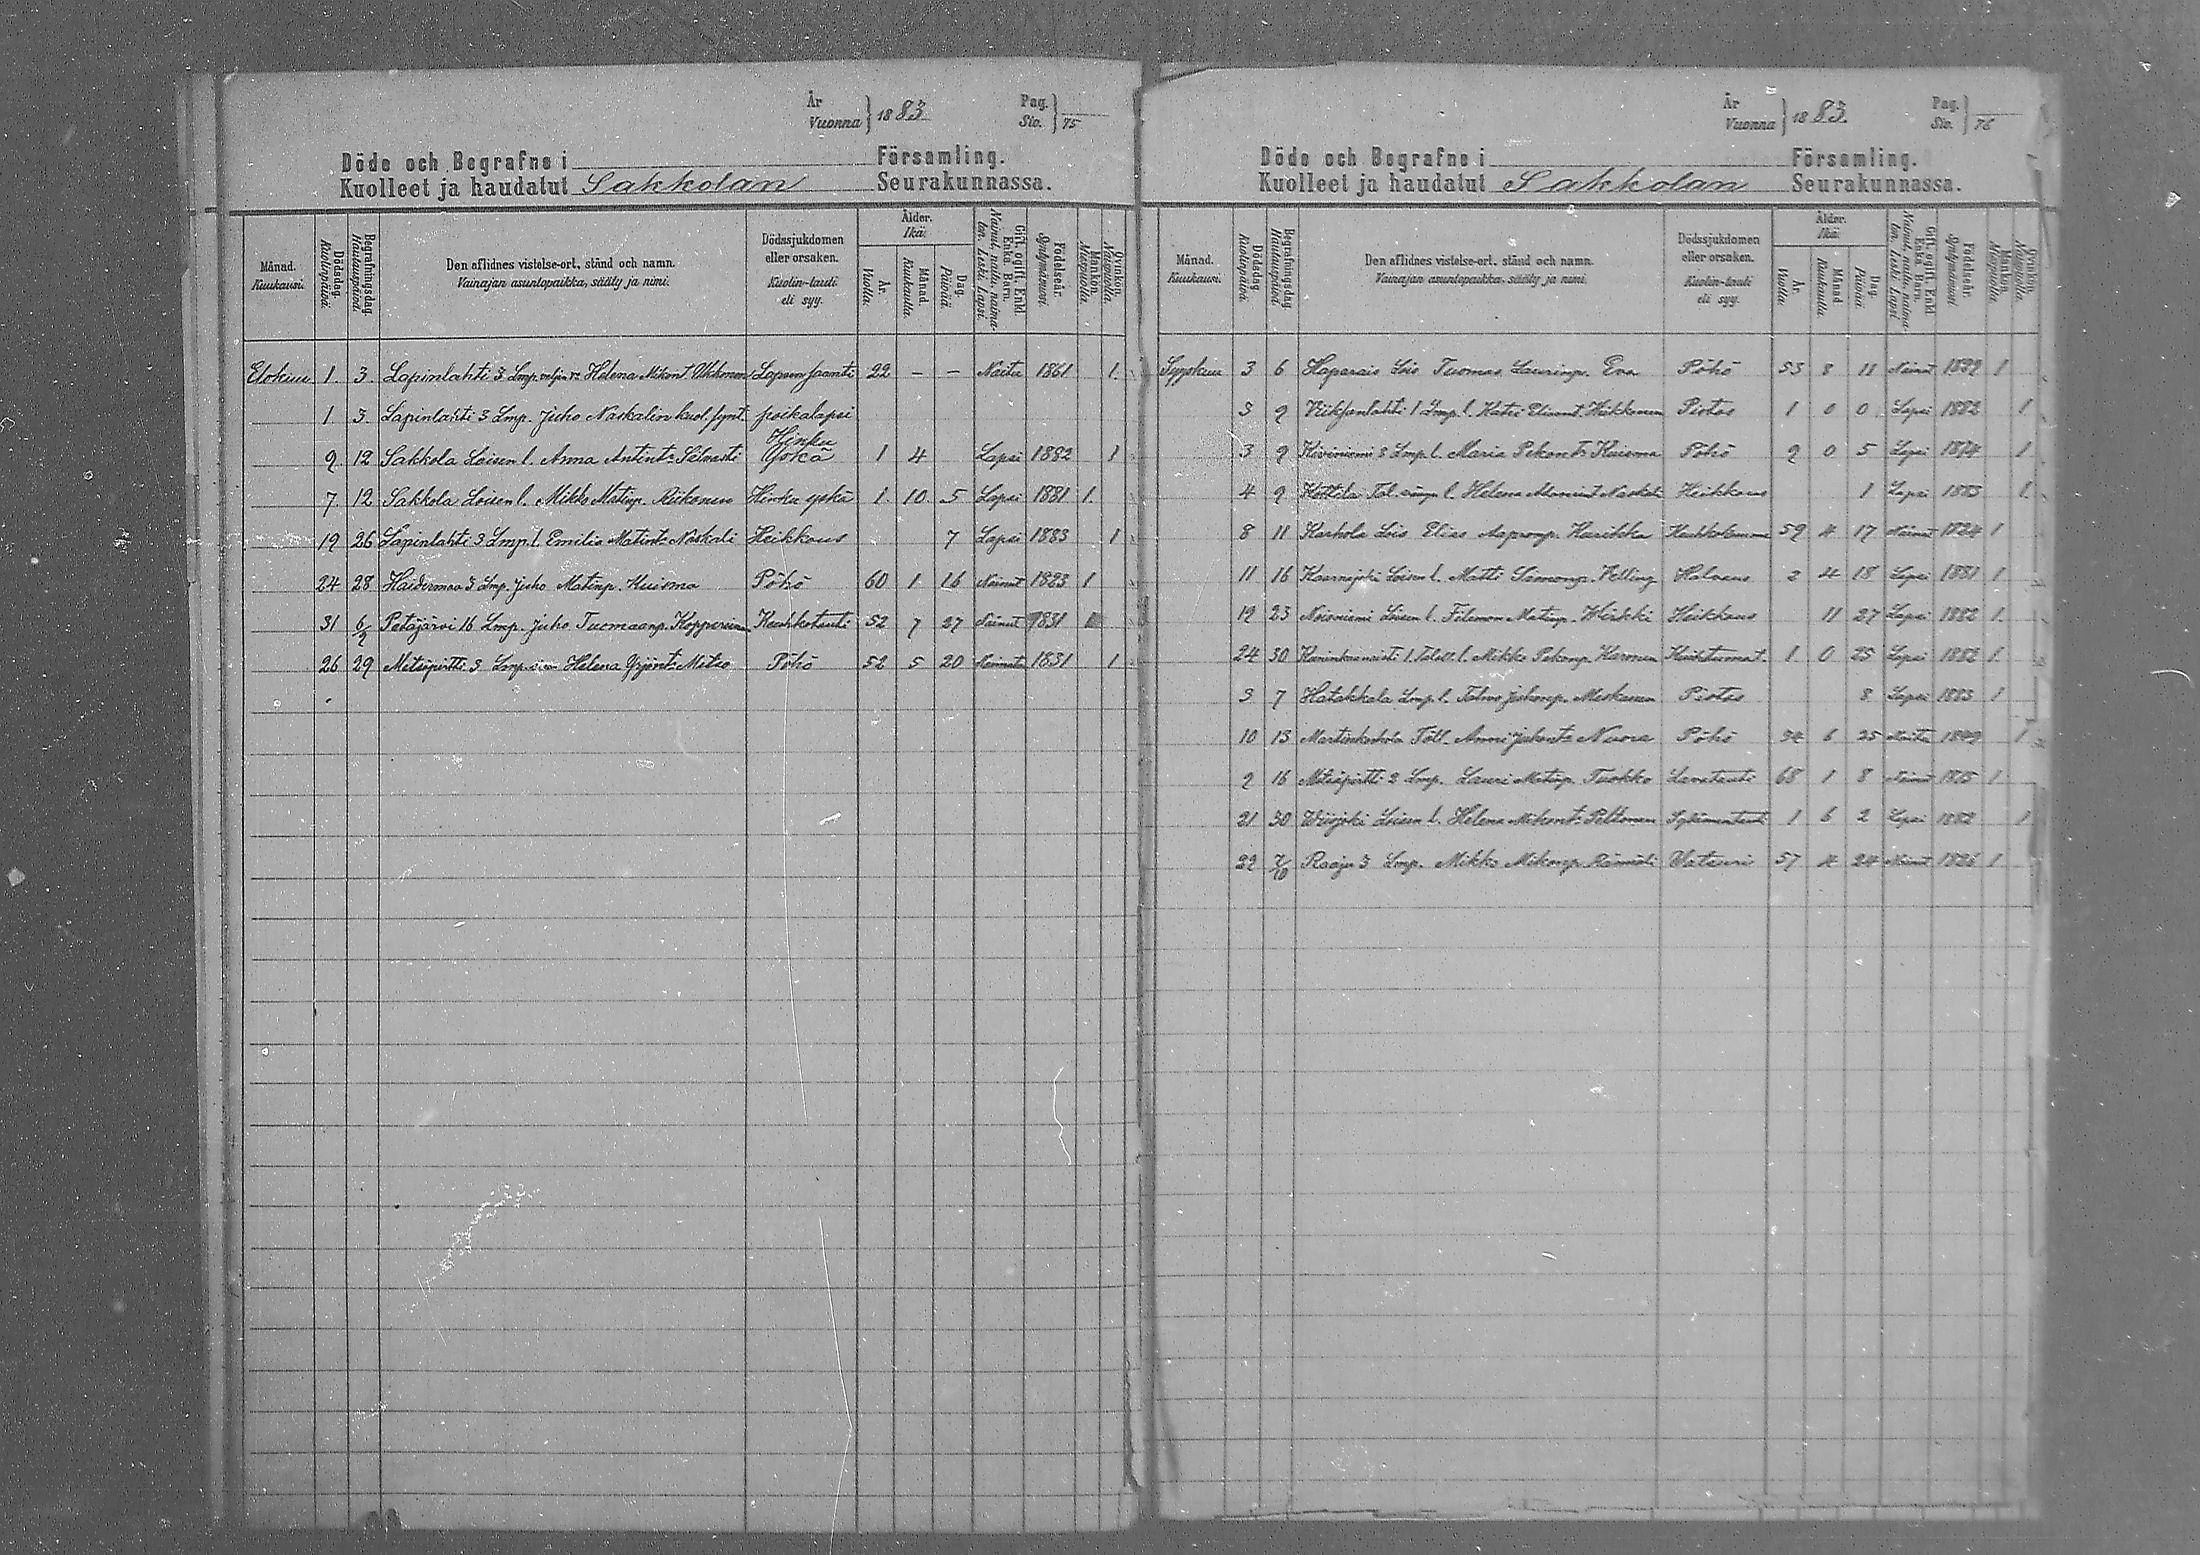 År
Vuonna } 1883.
Pag.
Siv. } 75
Döde och Begrafne i Församling.
Kuolleet ja haudatut Sakkolan Seurakunnassa.
Månad. Kuukausi. Dödsdag. Kuolinpäivä. Begrafningsdag. Hautauspäivä. Den aflidnes vistelse-ort, stånd och namn. Vainajan asuntopaikka, sääty ja nimi. Dödssjukdomen eller orsaken. Kuolin-tauti eli syy. Ålder. Ikä. År. Vuotta. Månad. Kuukautta. Dag. Päivää. Gift, ogift. Enkl. Enka. Barn. Nainut, naitu, naimaton. Leski. Lapsi. Födelseår. Syntymävuosi. Mankön. Miespuolia. Qvinkön. Naispuolia.
Elokuu 1. 3. Lapinlahti 3 Lmp. veljen v. Helena Mikont. Ukkonen Lapsen saanti 22 – – Naitu 1861 1.
1 3. Lapinlahti 3 Lmp. Juho Naskalin kuol. synt. poikalapsi
9. 12 Sakkola Loisen l. Anna Antint. Hinku Yskä 1 4 Lapsi 1882 1
7. 12 Sakkola Loisen l. Mikko Matinp. Riikonen Hinku yskä 1. 10. 5 Lapsi 1881 1.
19 26 Lapinlahti 3 Lmp. l. Emilia Matint. Naskali Heikkous 7 Lapsi 1883 1
24 28 Haidermaa 3 Lmp. Juho Matinp. Kuisma Pöhö 60 1 16 Nainut 1823 1
31 6/9 Petäjärvi 16 Lmp. Juho Tuomaanp. Kopperoinen Keuhkotauti 52 7 27 Nainut 1831
26 29 Metsäpirtti 3 Lmp. Helena Yrjönt. Mitso Pöhö 52 5 20 1831 1
År
Vuonna } 1883.
Pag.
Siv. } 76
Döde och Begrafne i Församling.
Kuolleet ja haudatut Sakkolan Seurakunnassa.
Månad. Kuukausi. Dödsdag. Kuolinpäivä. Begrafningsdag. Hautauspäivä. Den aflidnes vistelse-ort, stånd och namn. Vainajan asuntopaikka, sääty ja nimi. Dödssjukdomen eller orsaken. Kuolin-tauti eli syy. Ålder. Ikä. År. Vuotta. Månad. Kuukautta. Dag. Päivää. Gift, ogift. Enkl. Enka. Barn. Nainut, naitu, naimaton. Leski. Lapsi. Födelseår. Syntymävuosi. Mankön. Miespuolia. Qvinkön. Naispuolia.
Syyskuu 3 6 Haparais Lois Tuomas Laurinp. Eva Pöhö 53 8 11 Nainut 1
3 9 1 Lmp. l. Katri Heikkonen Pistos 1 0 0 Lapsi 1882 1
3 9 Kiviniemi 8 Lmp. l. Maria Pekont. Kuisma Pöhö 9 0 5 Lapsi 1874 1
4 9 Kottila Tal. l. Helena Naskali Heikkous 1 Lapsi 1883 1.
8 11 Karhola Lois Elias Aapronp. Kurikka 59 4 17 Nainut 1824 1
11 16 Kaarnajoki Loisen l. Matti Simonp. Velling Halvaus 2 4 18 Lapsi 1881 1
19 23 Noisniemi Loisen l. Filemon Matinp. Heikkous 11 27 Lapsi 1882 1.
24 30 1. l. Mikko Pekonp. 1 0 25 Lapsi 1882 1.
3 7 Hatakkala Lmp. l. Pistos 8 Lapsi 1883 1.
10 13 Anni Juhont. Nuora Pöhö 34 6 25 Naitu 1849 1
9 16 Metsäpirtti 2 Lmp. Lauri Matinp. Tuokko 68 1 8 Nainut 1815 1
21 30 Wiisjoki Loisen l. Helena Mikont. Peltonen 1 6 2 Lapsi 1882 1
22 7/10 Raaju 3 Lmp. Mikko Mikonp. Vatsuri 57 4 24 Nainut 1826 1